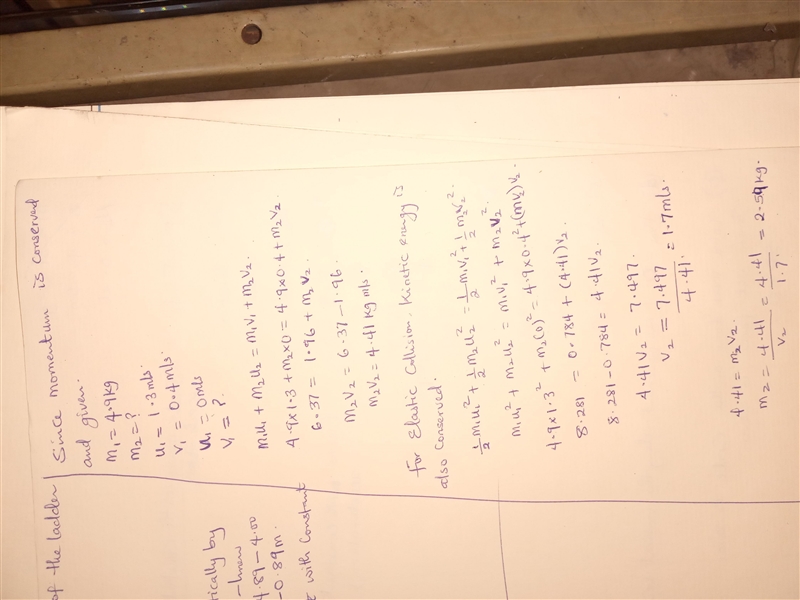 of the ladder
tically by
-knew
4.89-4.00
-0.89m.
with constant
Since momentum is conserved
and given.
m₁ = 4.9kg
m₂ = ?
u₁ = 1.3m/s.
v₁ = 0.4m/s.
u₁ = 0m/s
v₁ = ?.
m₁u₁ + m₂u₂ = m₁v₁ + m₂v₂.
4.9x1.3 + m₂x0 = 4.9x0.4 + m₂v₂
6.37 = 1.96 + m₂v₂.
m₂v₂ = 6.37 - 1.96.
m₂v₂ = 4.41 kg m/s.
For Elastic Collision. Kinetic energy is
also conserved.
½m₁u₁² + ½m₂u₂² = ½m₁v₁² + ½m₂v₂².
m₁u₁² + m₂u₂² = m₁v₁² + m₂v₂².
4.9x1.3² + m₂(0)² = 4.9x0.4² + (mv₂)v₂.
8.281 = 0.784 + (4.41)v₂.
8.281-0.784 = 4.41v₂.
4.41v₂ = 7.497.
v₂ = 7.497/4.41. = 1.7m/s.
4.41 = m₂v₂.
m₂ = 4.41/v₂ = 4.41/1.7. = 2.59kg.